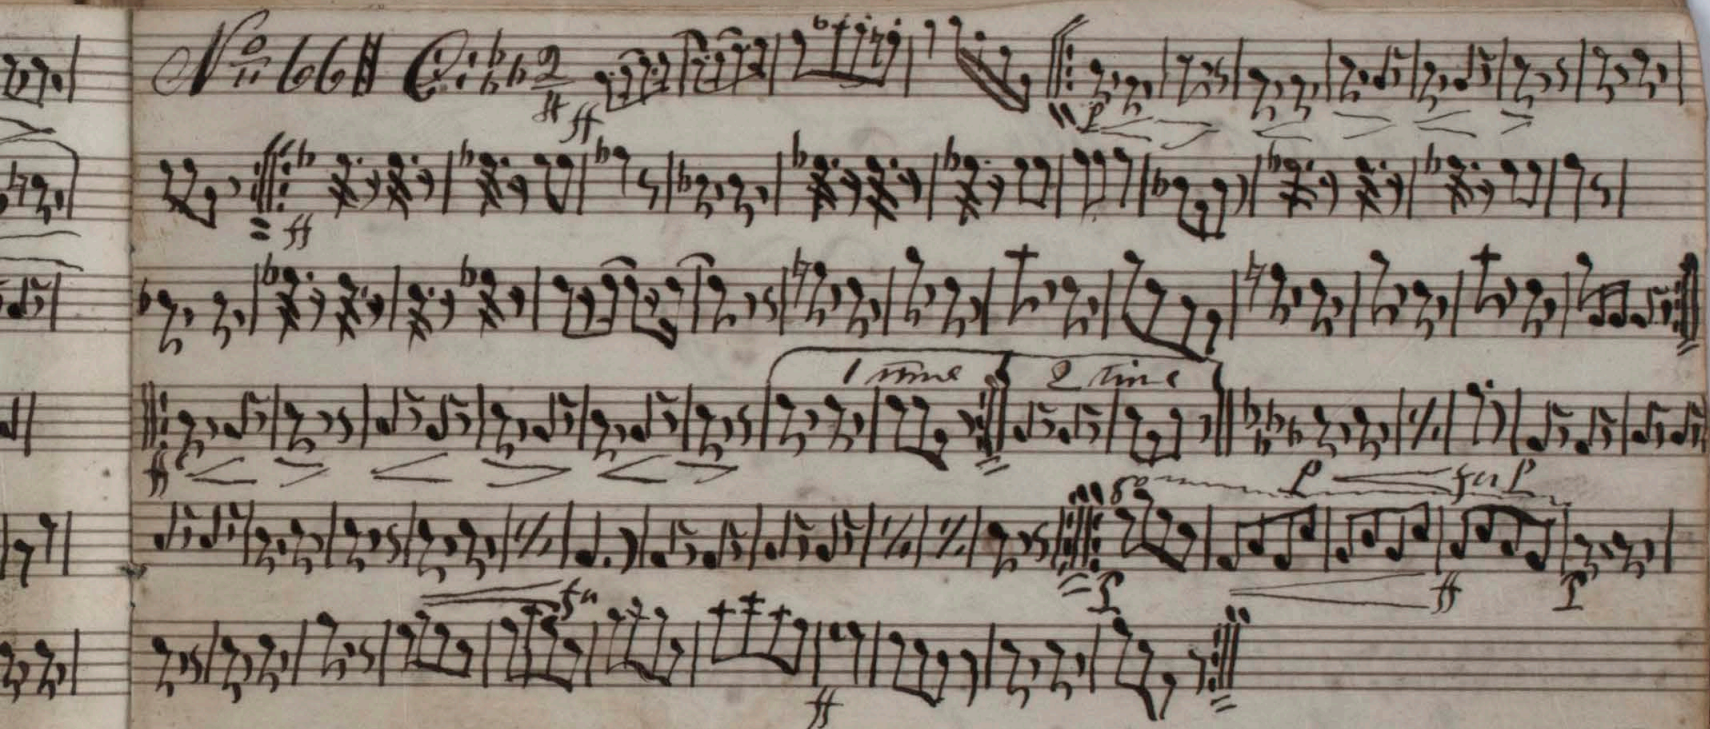 No 66 2
ff
p
ff
1 time 2 time
ff
p
p
8va
p ff p
ff